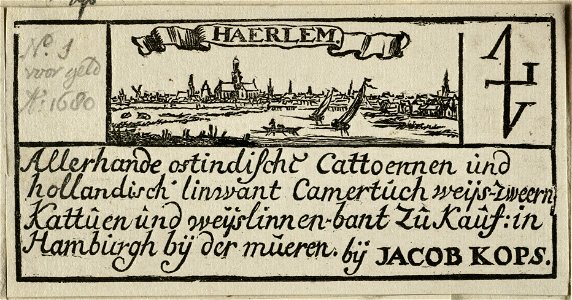 HAERLEM
No. 1
voor geld
Ao: 1680
Allerhande ostindische Cattoennen ûnd
hollandisch linwant Camertûch weijs-Zweern
Kattûen ûnd weijslinnen-bant Zû Kaûf: in
Hambûrgh bij der mûeren. bij JACOB KOPS.